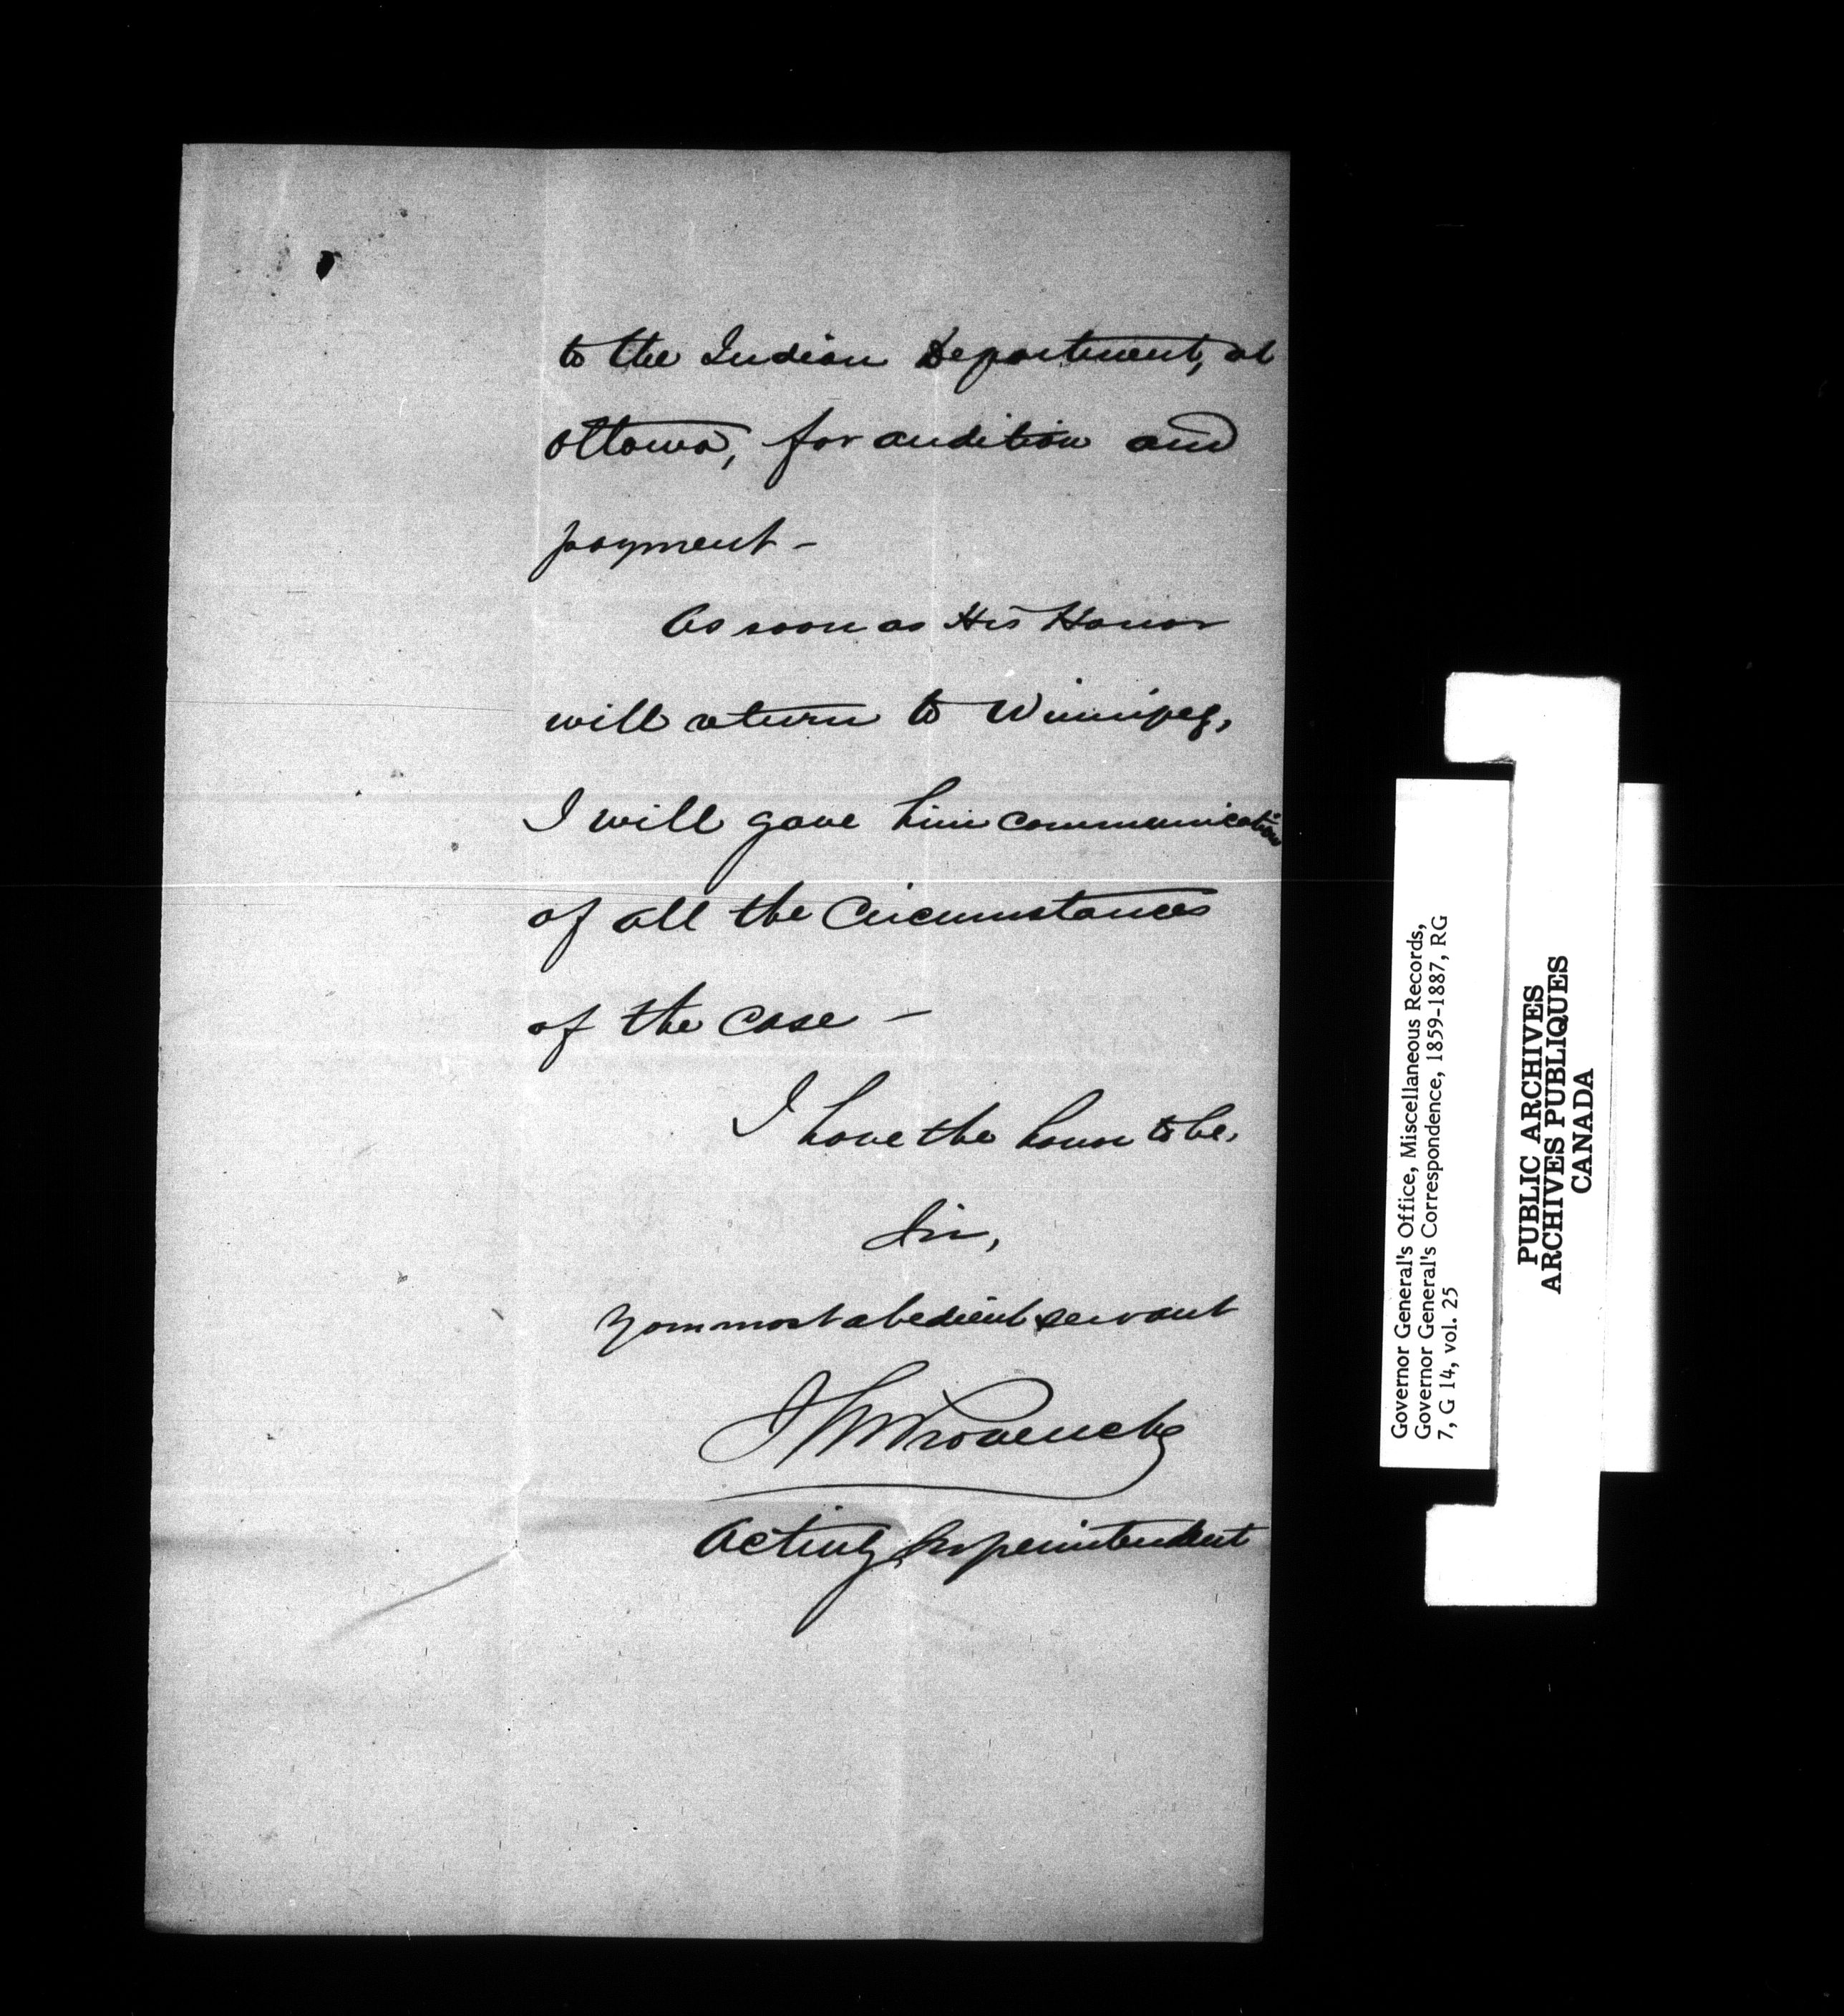 to the Indian Department, at
Ottawa, for audition and
payment -
As soon as His Honor
will return to Winnipeg,
I will gave him communication
of all the Circumstances
of the case -
I have the honor to be,
Sir,
Your most obedient servant
J A N Provencher
Acting Superintendent
Governor General's Office, Miscellaneous Records,
Governor General's Correspondence, 1859-1887, RG
7, G 14, vol. 25
PUBLIC ARCHIVES
ARCHIVES PUBLIQUES
CANADA